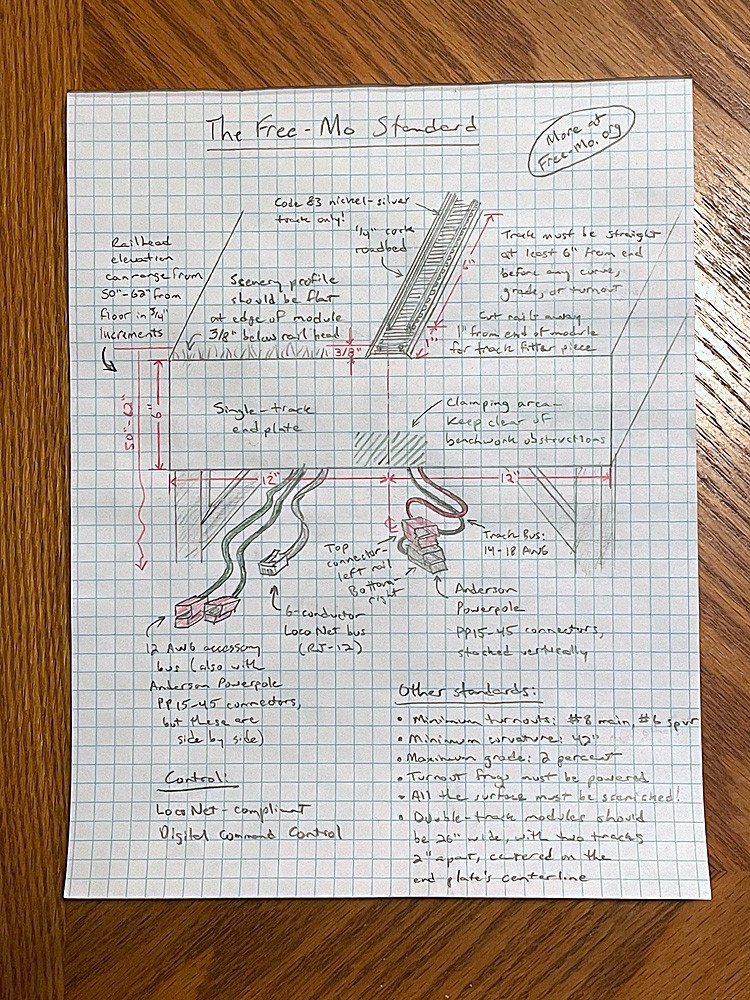 The Free-Mo Standard
More at
Free-Mo.org
Code 83 nickel-silver
track only!
1/4" cork
roadbed
Railhead
elevation
can range from
50"-62" from
floor in 3/4"
increments
Scenery profile
should be flat
at edge of module
3/8" below rail head
Track must be straight
at least 6" from end
before any curve,
grade, or turnout
Cut rails away
1" from end of module
for track fitter piece
6"
1"
3/8"
50"-62"
6"
Single-track
end plate
Clamping area-
Keep clear of
benchwork obstructions
12"
12"
CL
Top
connector-
left rail
Bottom-
right
Track Bus:
14-18 AWG
6-conductor
LocoNet bus
(RJ-12)
Anderson
Powerpole
PP15-45 connectors,
stacked vertically
12 AWG accessory
bus (also with
Anderson Powerpole
PP15-45 connectors,
but these are
side by side)
Control:
LocoNet-compliant
Digital Command Control
Other standards:
• Minimum turnouts: #8 main, #6 spur
• Minimum curvature: 42"
• Maximum grade: 2 percent
• Turnout frogs must be powered
• All the surface must be scenicked!
• Double-track modules should
be 26" wide, with two tracks
2" apart, centered on the
end plate's centerline